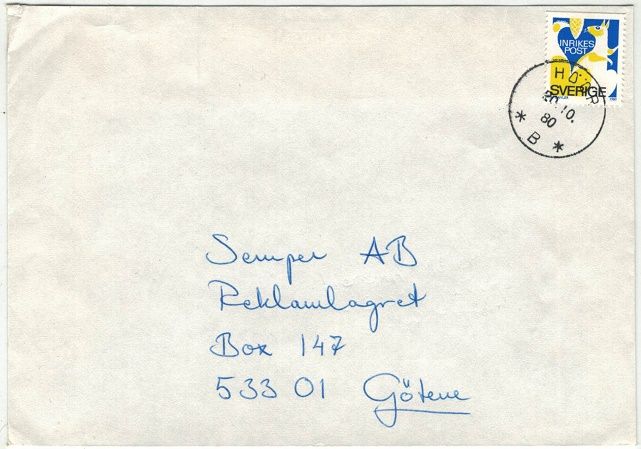 INRIKES
POST
SVERIGE
HÖÖR
20.10.
80
* B *
Semper AB
Reklamlagret
Box 147
533 01 Götene